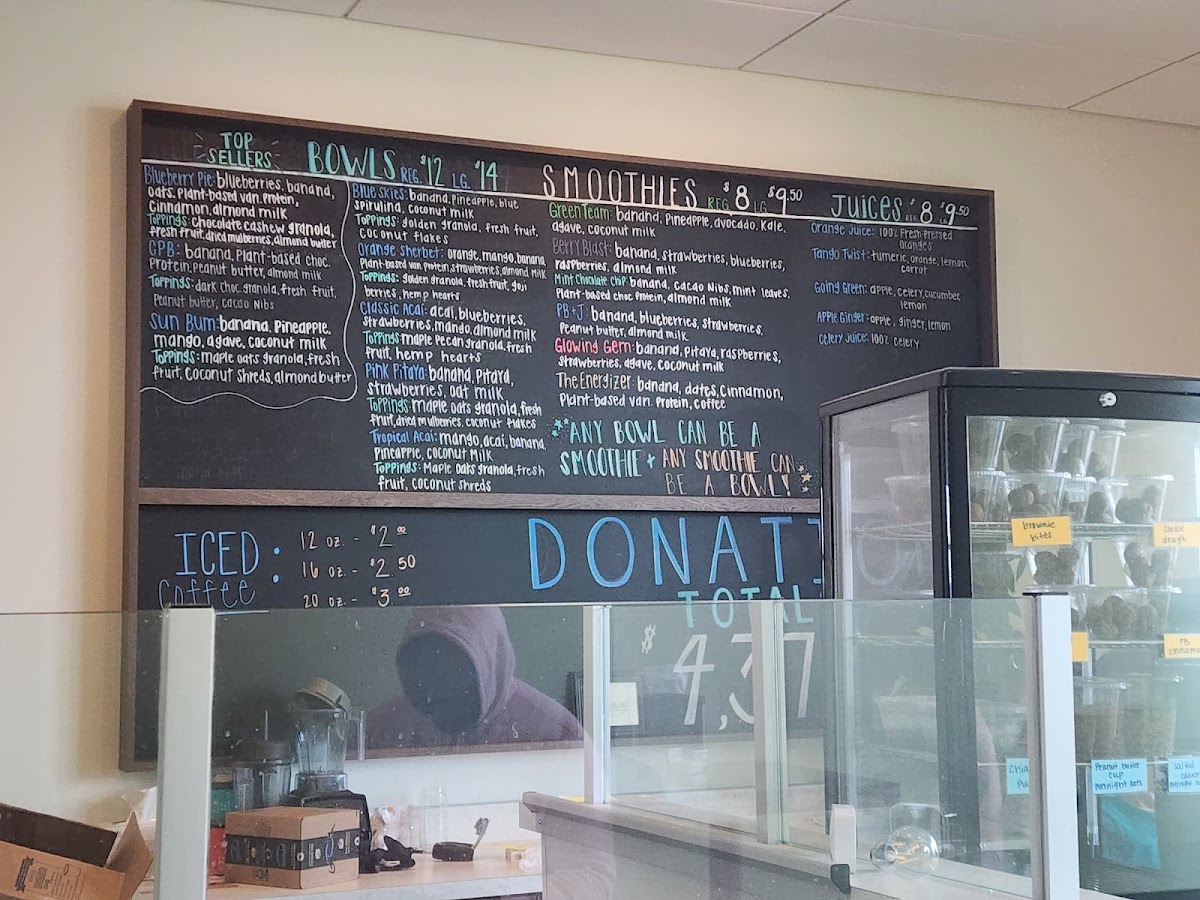 TOP
SELLERS
Blueberry Pie: blueberries, banana,
oats, plant-based van. protein,
cinnamon, almond milk
Toppings: chocolate cashew granola,
fresh fruit, dried mulberries, almond butter
CPB: banana, plant-based choc.
Protein, peanut butter, almond milk
Toppings: dark choc. granola, fresh fruit,
Peanut butter, cacao nibs
Sun Bum: banana, pineapple,
mango, agave, coconut milk
Toppings: maple oats granola, fresh
fruit, coconut shreds, almond butter
BOWLS REG. $12 LG. $14
Blue Skies: banana, pineapple, blue
spirulina, coconut milk
Toppings: golden granola, fresh fruit,
coconut flakes
Orange Sherbet: orange, mango, banana,
Plant-based van protein, strawberries, almond milk
Toppings: golden granola, fresh fruit, goji
berries, hemp hearts
Classic Acai: acai, blueberries,
strawberries, mango, almond milk
Toppings: maple pecan granola, fresh
fruit, hemp hearts
Pink Pitaya: banana, pitaya,
strawberries, oat milk
Toppings: maple oats granola, fresh
fruit, dried mulberries, coconut flakes
Tropical Acai: mango, acai, banana,
pineapple, coconut milk
Toppings: Maple oats granola, fresh
fruit, coconut shreds
SMOOTHIES REG. $8 LG. $9.50
Green Team: banana, pineapple, avocado, kale,
agave, coconut milk
Berry Blast: banana, strawberries, blueberries,
raspberries, almond milk
Mint Chocolate Chip: banana, cacao nibs, mint leaves,
Plant-based choc protein, almond milk
PB+J: banana, blueberries, strawberries,
Peanut butter, almond milk
Glowing Gem: banana, pitaya, raspberries,
strawberries, agave, coconut milk
The Energizer: banana, dates, cinnamon,
Plant-based van. protein, coffee
ANY BOWL CAN BE A
SMOOTHIE + ANY SMOOTHIE CAN
BE A BOWL!
JUICES REG. $8 LG. $9.50
Orange Juice: 100% Fresh-pressed
oranges
Tango Twist: tumeric, orange, lemon,
carrot
Going Green: apple, celery, cucumber,
lemon
Apple Ginger: apple, ginger, lemon
Celery Juice: 100% celery
ICED
Coffee :
12 oz. - $2.00
16 oz. - $2.50
20 oz. - $3.00
DONATION
TOTAL
$4,37
brownie
bites
cookie
dough
PB
cinnamon
Chia
Pu
Peanut butter
cup
overnight oats